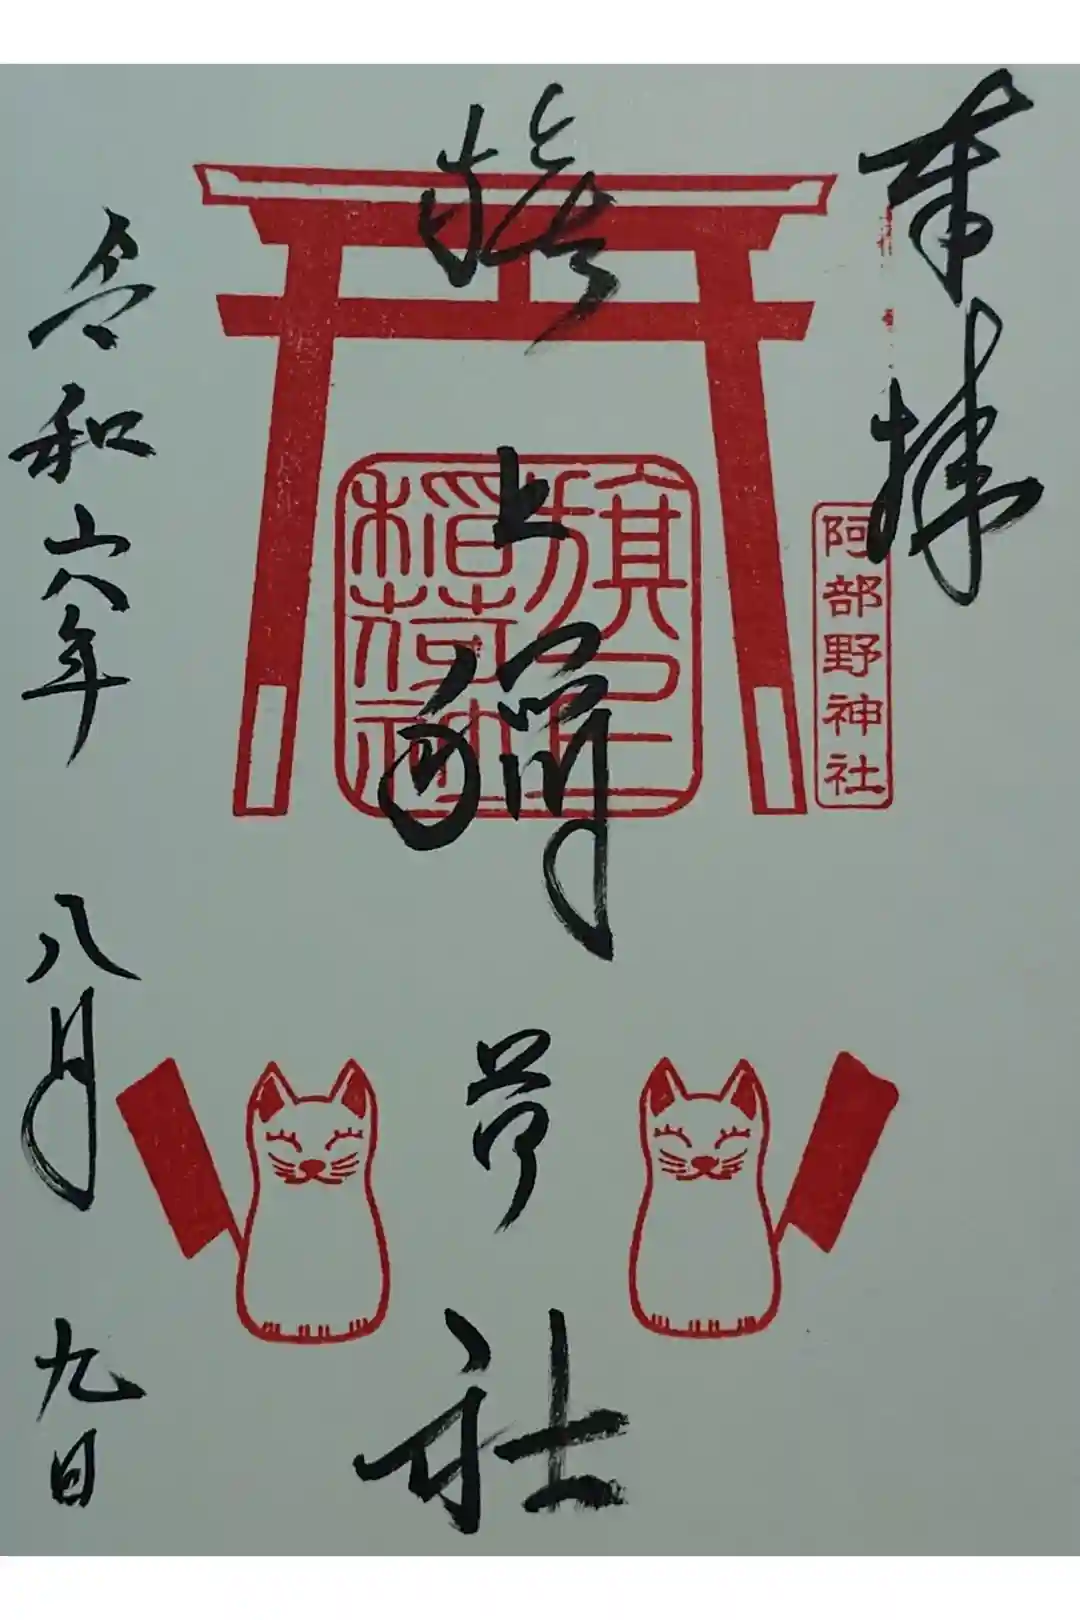 奉拝
阿部野神社
旗上稲荷社
旗上
稲荷
令和六年八月九日